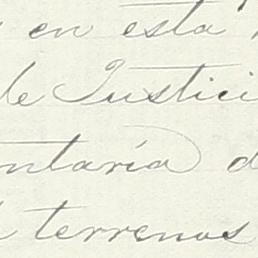 en esta
de Justici
ntaría d
terrenos